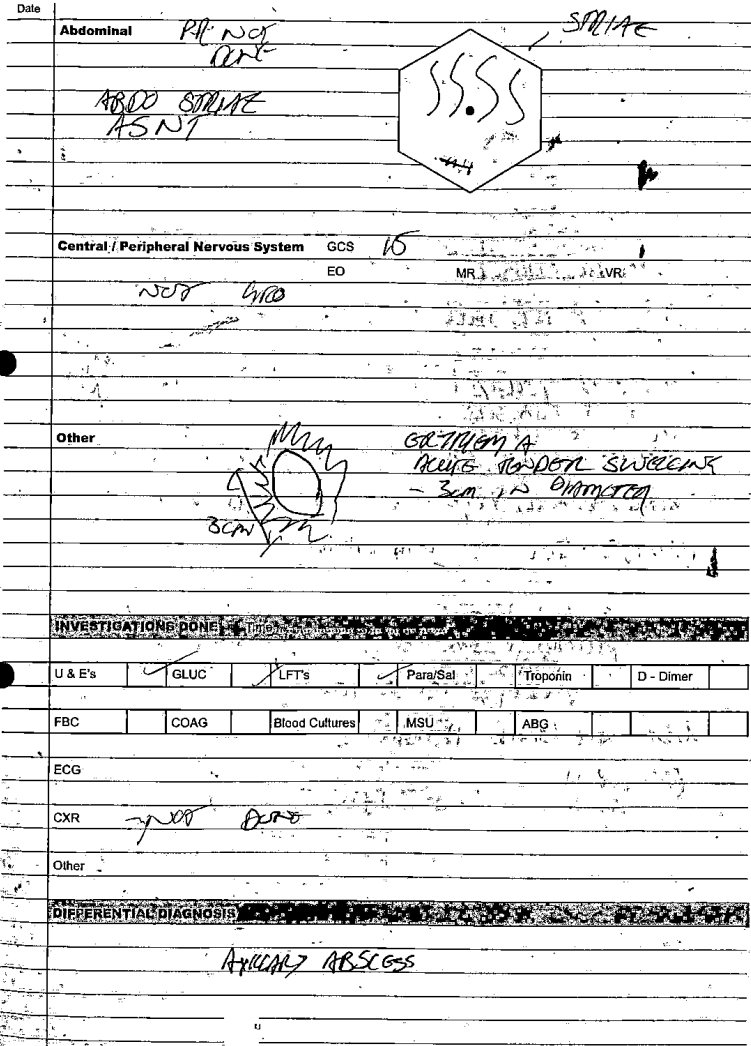 Date
Abdominal PR NOT
DONE
STRIAE
ABDO STRIAE
ASNT
Central / Peripheral Nervous System GCS 15
EO MR VR
NOT
Other
ERYTHEMA
ACUTE TENDER SWELLING
- 3cm IN DIAMETER
3cm
INVESTIGATIONS DONE Time
U & E's ✓ GLUC ✓ LFT's ✓ Para/Sal Troponin D - Dimer
FBC COAG Blood Cultures MSU ABG
ECG
CXR → NOT DONE
Other
DIFFERENTIAL DIAGNOSIS
AXILLARY ABSCESS